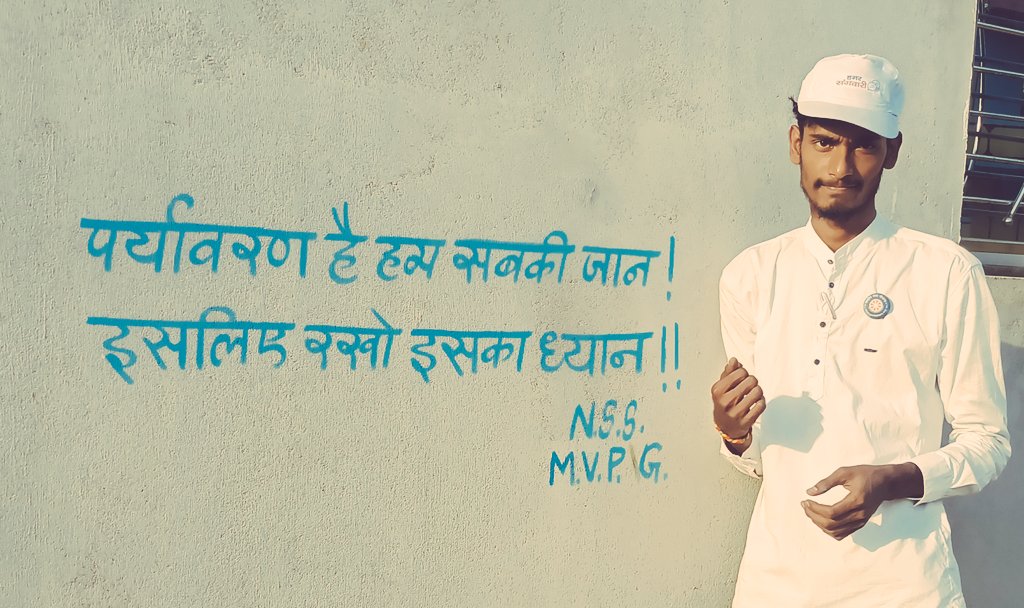 हमर
संगवारी
पर्यावरण है हम सबकी जान!
इसलिए रखो इसका ध्यान!!
N.S.S.
M.V.P.G.